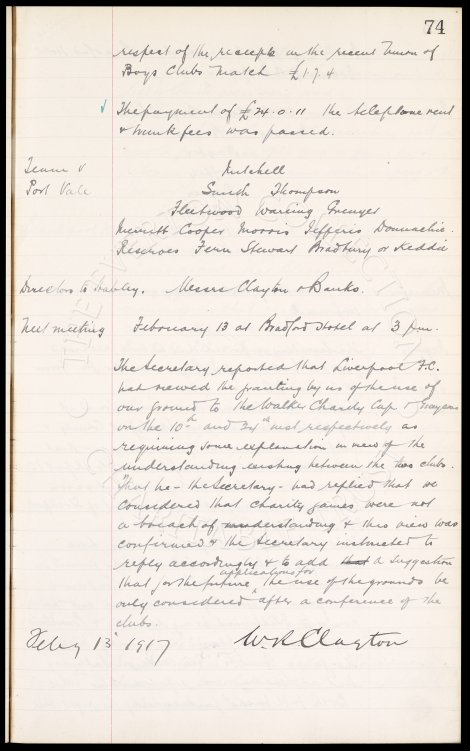 74
respect of the receipts in the recent Union of
Boys Clubs Match £1.7.4
The payment of £24.0.11 the telephone rent
& trunk fees was passed.
Team v Mitchell
Port Vale Smith Thompson
Fleetwood Wareing Grenyer
Merritt Cooper Morris Jefferis Donnachie.
Reserves Fern Stewart Bradbury or Keddie
Directors to Hanley. Messrs Clayton & Banks.
Next meeting February 13 at Bradford Hotel at 3 pm.
The Secretary reported that Liverpool F.C.
had viewed the granting by us of the use of
our ground to the Walker Charity Cup &
on the 10th and 24th inst respectively as
requiring some explanation in view of the
understanding existing between the two clubs.
That he - the Secretary - had replied that we
considered that charity games were not
a breach of understanding & this view was
confirmed & the Secretary instructed to
reply accordingly & to add that a suggestion
that for the future applications for the use of the grounds be
only considered after a conference of the
clubs.
Feby 13 1917 W.R. Clayton